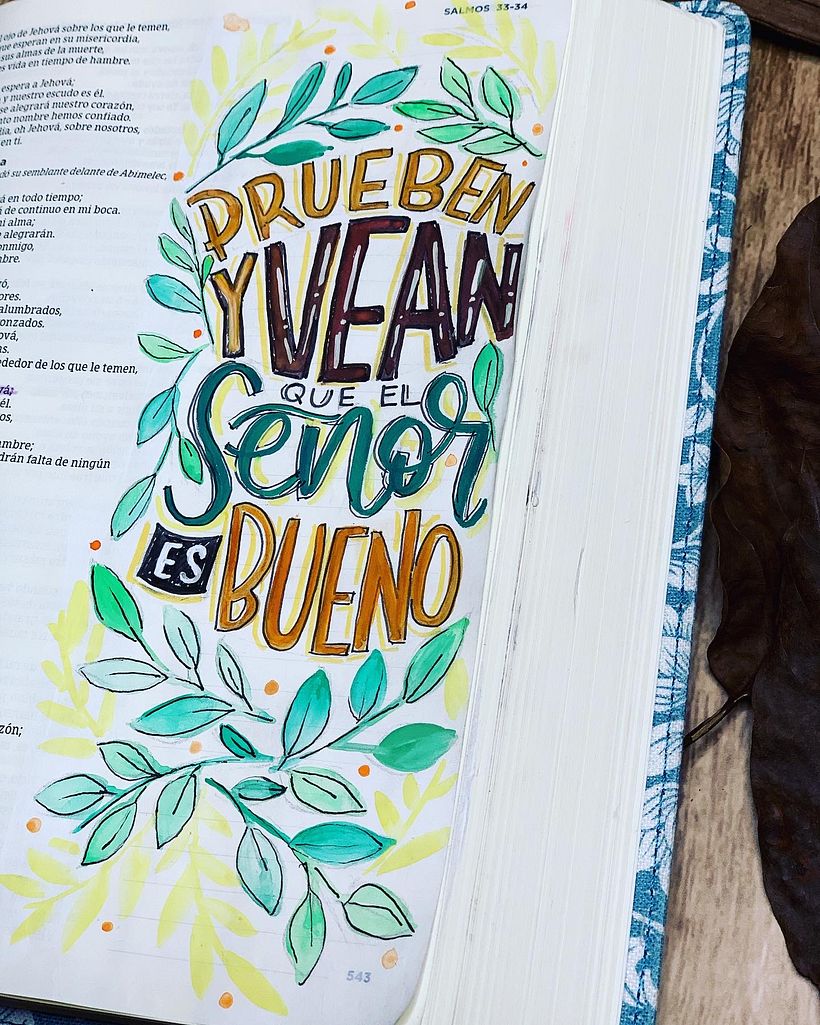 SALMOS 33-34
ojo de Jehová sobre los que le temen,
que esperan en su misericordia,
sus almas de la muerte,
vida en tiempo de hambre.
espera a Jehová;
y nuestro escudo es él.
se alegrará nuestro corazón,
nombre hemos confiado.
oh Jehová, sobre nosotros,
en ti.
su semblante delante de Abimelec,
en todo tiempo;
de continuo en mi boca.
mi alma;
alegrarán.
conmigo,
alumbrados,
rededor de los que le temen,
él.
falta de ningún
PRUEBEN
Y VEAN
QUE EL
Señor
ES BUENO
543